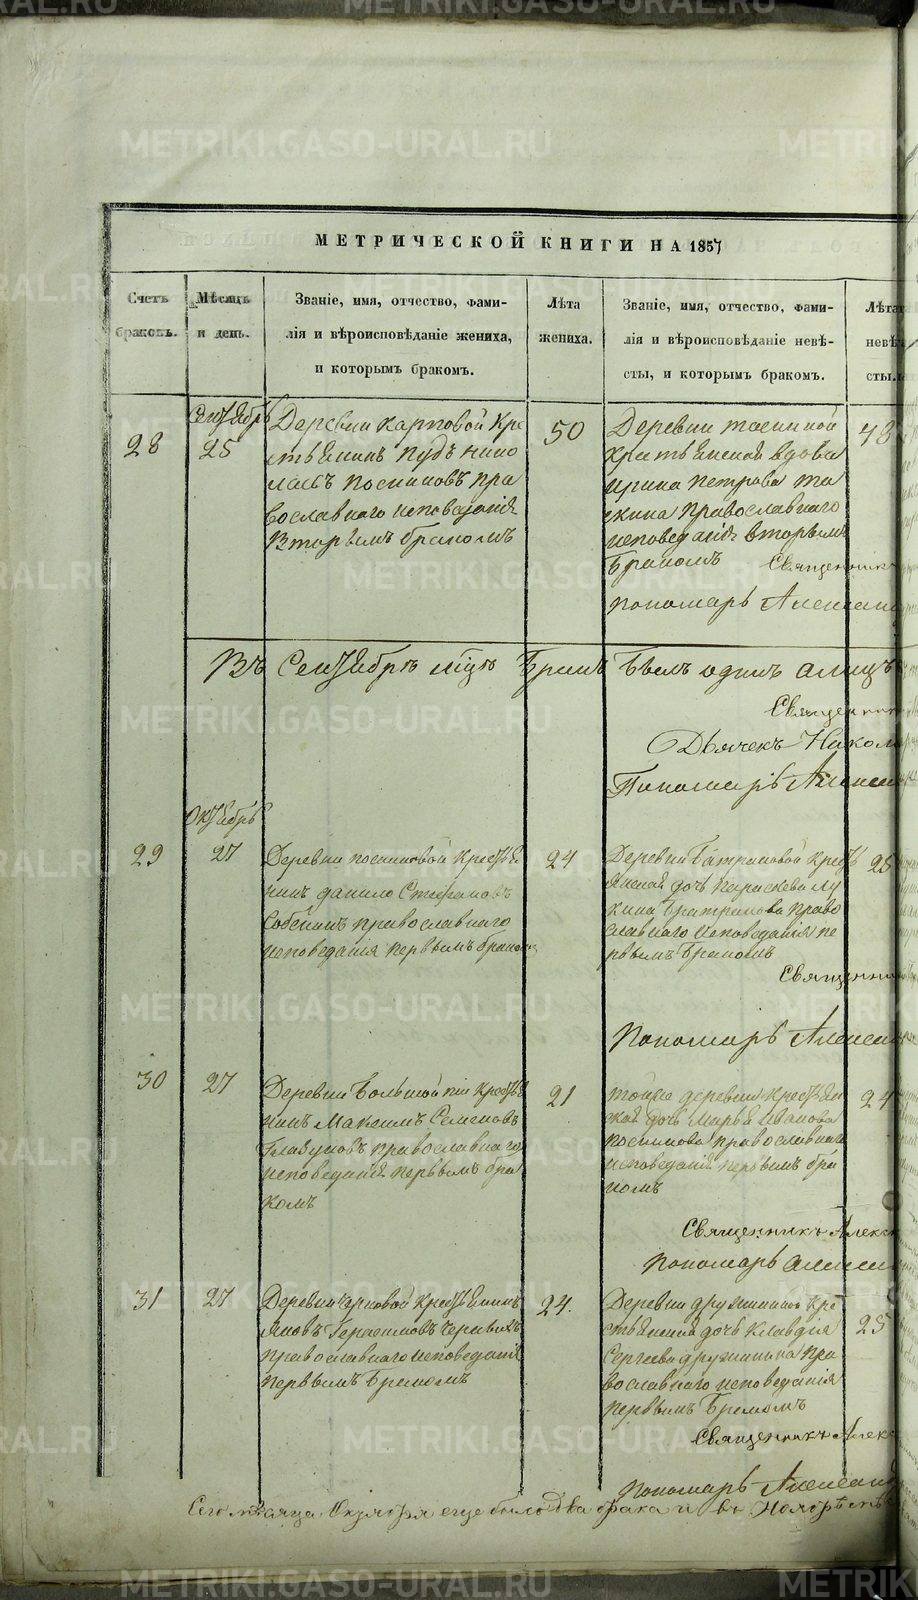 МЕТРИЧЕСКОЙ КНИГИ НА 1857
Счетъ браковъ.
Мѣсяцъ и день.
Званіе, имя, отчество, фами-
лія и вѣроисповѣданіе жениха,
и которымъ бракомъ.
Лѣта
жениха.
Званіе, имя, отчество, фами-
лія и вѣроисповѣданіе невѣ-
сты, и которымъ бракомъ.
Лѣта
невѣ
сты.
Сентябрь
28
25
Деревни Карповой Кре
стьянинъ Пудъ Нико
лаевъ Посниковъ Пра
вославнаго исповѣданія
Вторымъ бракомъ
50
Деревни
крестьянская вдова
Ирина Петрова
Православнаго
исповеданія вторымъ
бракомъ
43
Священникъ
Пономарь Александ
Въ Сентябрѣ мцѣ Бракъ былъ одинъ
Священник
Дьячекъ Никол
Пономарь Алекса
Октябрь
29
27
Деревни Посниковой Кресть
нинъ Данило Стефановъ
православнаго
исповедания первымъ бракомъ
24
Деревни Кресть
янская дочь Параскева Лу
кина Право
славнаго исповеданія пе
рвымъ бракомъ
25
Священник
Пономарь Алекса
30
27
Деревни Большой Крестья
нинъ Максимъ Семеновъ
Глазуновъ православнаго
исповеданія первымъ бра
комъ
21
тойже деревни Крестьян
ская дочь Марья Иванова
Посникова православнаго
исповеданія первымъ бра
комъ
24
Священникъ Алекс
Пономарь Алекса
31
27
Деревни Крестьянинъ
Яковъ Герасимовъ
православнаго исповеданія
первымъ бракомъ
24.
Деревни Дружининой Кре
стьянская дочь Клавдія
Сергеева Дружинина Пра
вославнаго исповеданія
первымъ бракомъ
25
Священникъ Алекс
Пономарь Александ
Сего месяца Октября еще было два брака и въ Ноябрѣ
METRIKI.GASO-URAL.RU